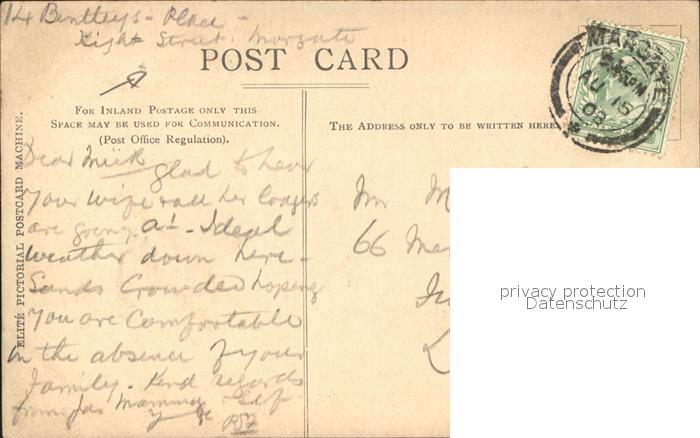 14 Bentleys - Place -
High Street. Margate
POST CARD
MARGATE
AU 15
FOR INLAND POSTAGE ONLY THIS
SPACE MAY BE USED FOR COMMUNICATION.
(Post Office Regulation).
THE ADDRESS ONLY TO BE WRITTEN HERE.
ELITE PICTORIAL POSTCARD MACHINE.
Dear
glad to hear
your wife & all her lodgers
are going A1 - Ideal
weather down here -
Sands Crowded hoping
you are Comfortable
in the absence of your
family - Kind regards
from
Mr M
66
privacy protection
Datenschutz